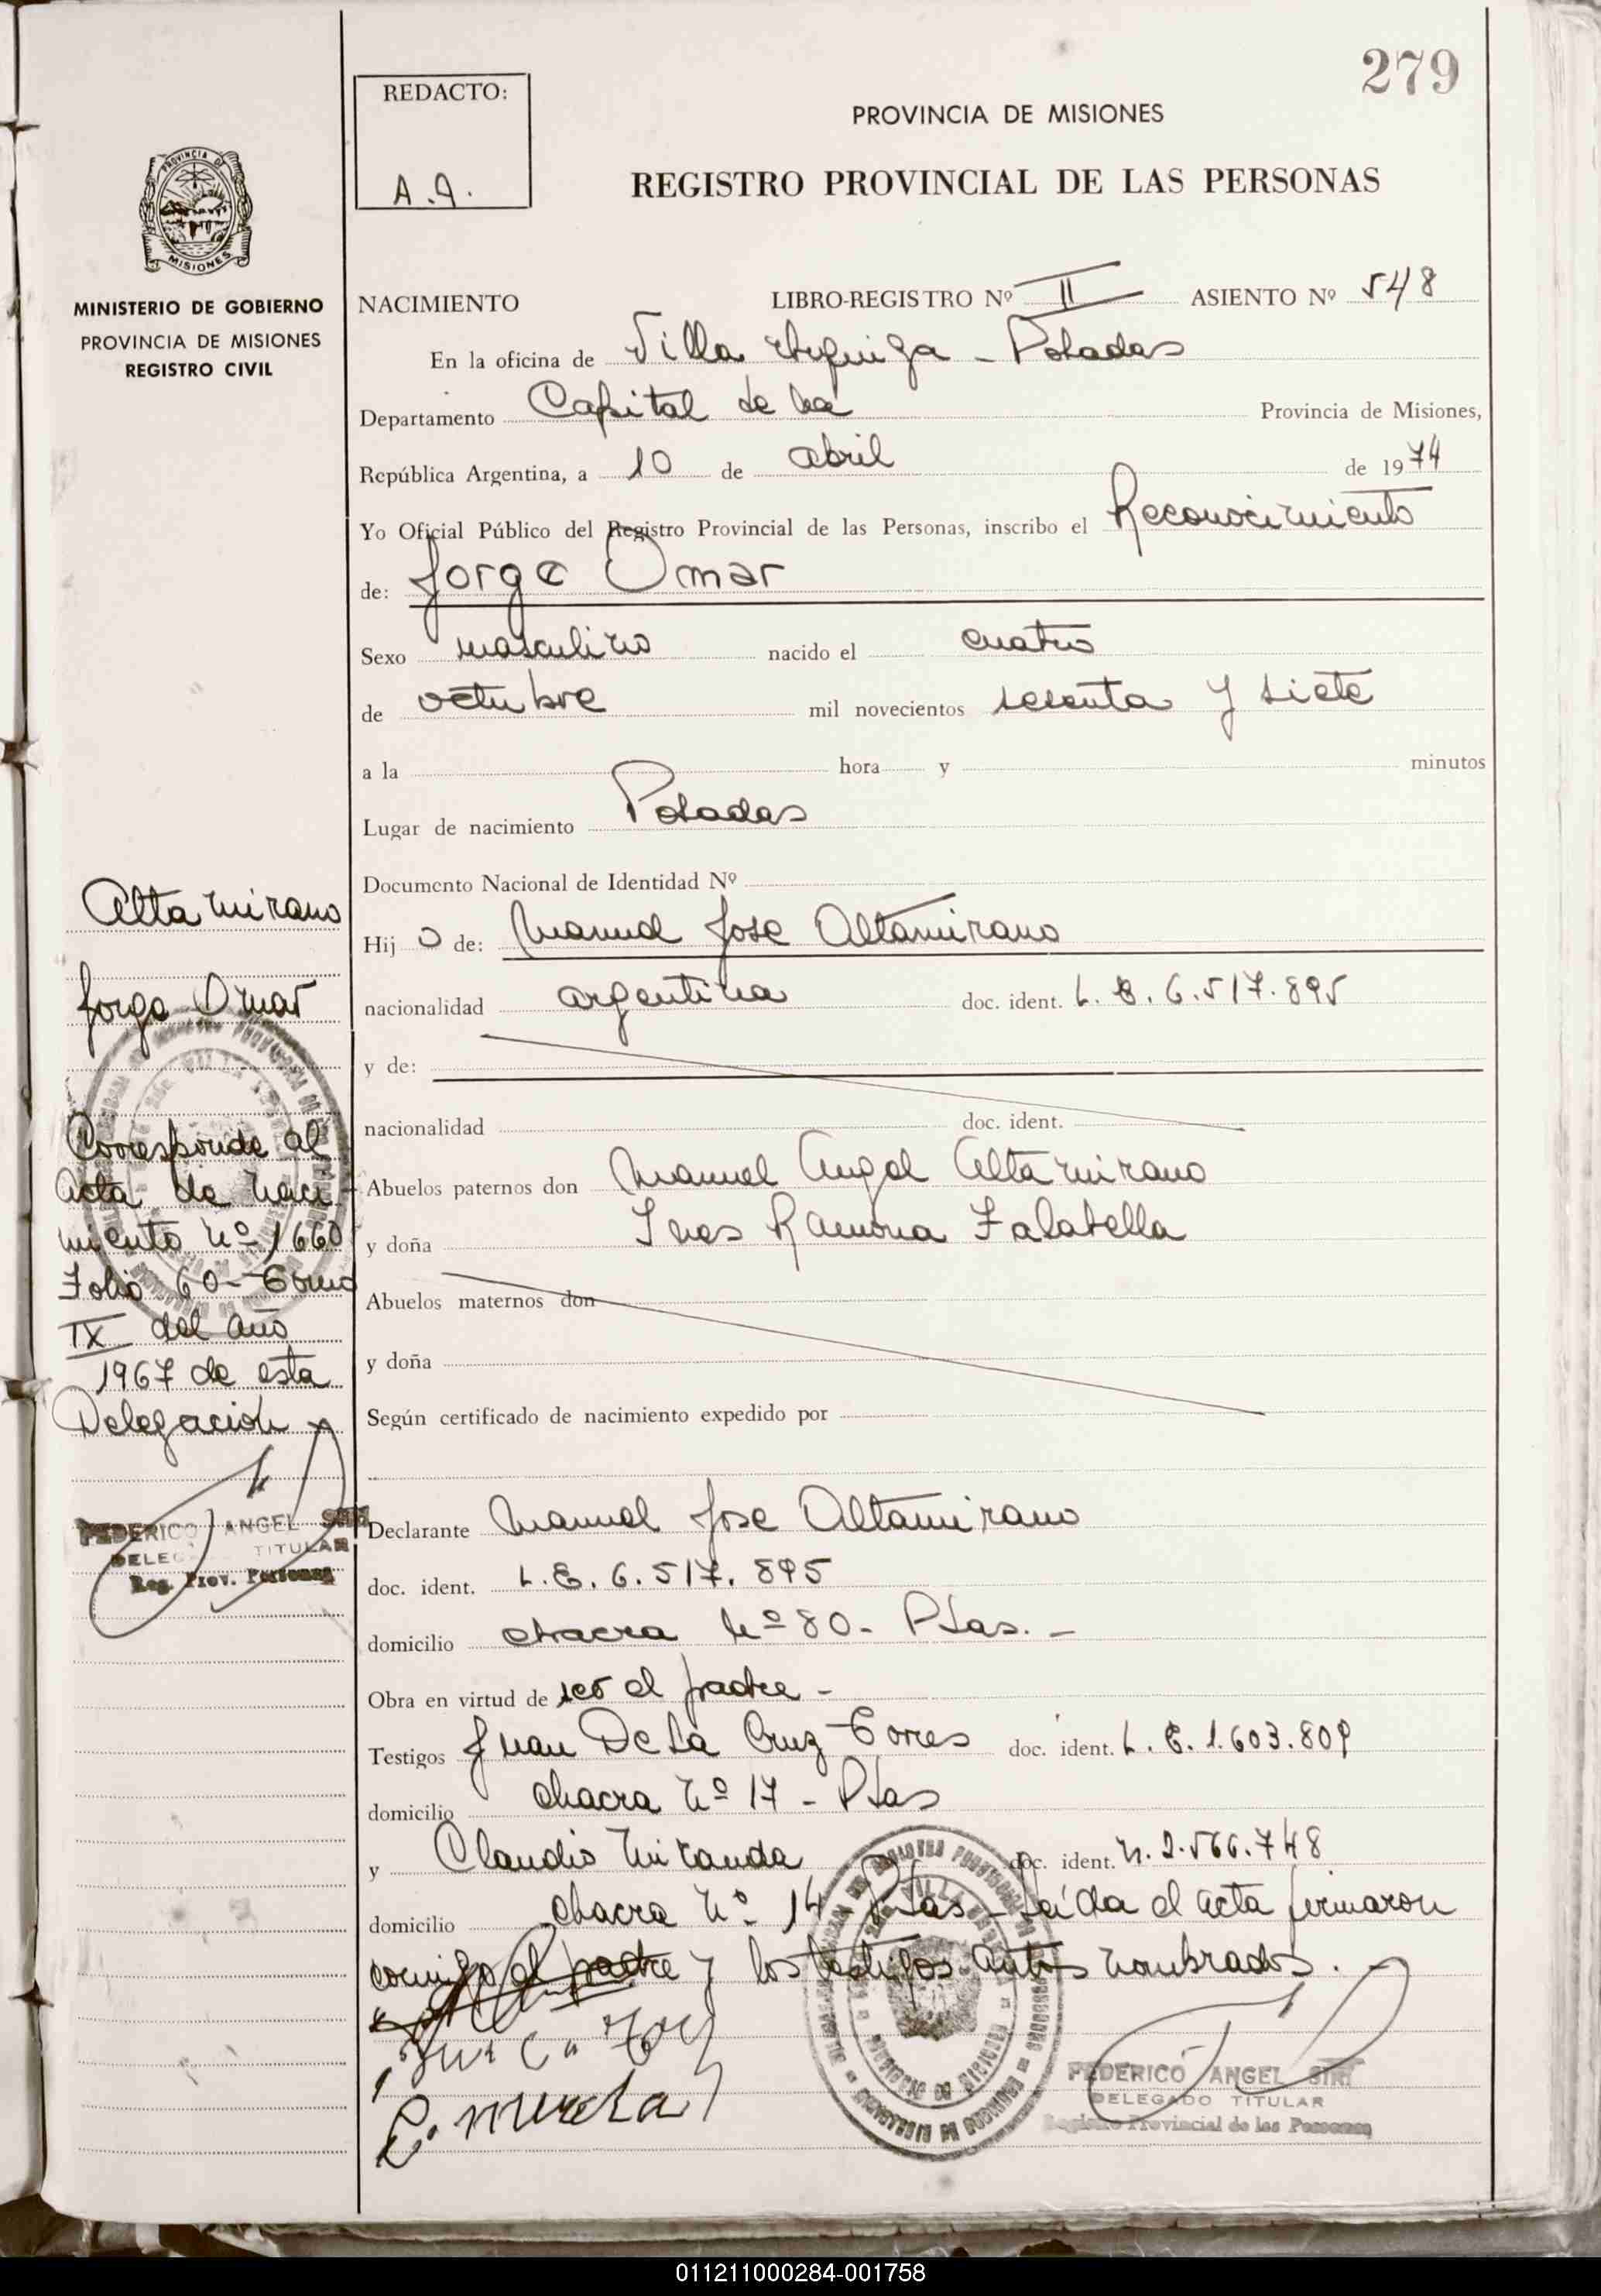 279
REDACTO:
A.A.
PROVINCIA DE MISIONES
REGISTRO PROVINCIAL DE LAS PERSONAS
PROVINCIA DE
MISIONES
MINISTERIO DE GOBIERNO
PROVINCIA DE MISIONES
REGISTRO CIVIL
NACIMIENTO LIBRO-REGISTRO Nº II ASIENTO Nº 548
En la oficina de Villa Urquiza - Posadas
Departamento Capital de la Provincia de Misiones,
República Argentina, a 10 de abril de 1974
Yo Oficial Público del Registro Provincial de las Personas, inscribo el Reconocimiento
de: Jorge Omar
Sexo masculino nacido el cuatro
de octubre mil novecientos sesenta y siete
a la hora y minutos
Lugar de nacimiento Posadas
Documento Nacional de Identidad Nº
Hij o de: Manuel Jose Altamirano
nacionalidad argentina doc. ident. L. E. 6.517.895
y de:
nacionalidad doc. ident.
Abuelos paternos don Manuel Angel Altamirano
y doña Ines Ramona Falabella
Abuelos maternos don
y doña
Según certificado de nacimiento expedido por
Declarante Manuel Jose Altamirano
doc. ident. L.E. 6.517.895
domicilio chacra Nº 80 - Pdas. -
Obra en virtud de ser el padre -
Testigos Juan De La Cruz Torres doc. ident. L. E. 1.603.809
domicilio chacra Nº 17 - Pdas
y Claudio Miranda doc. ident. N. 2.566.748
domicilio chacra Nº 14 Pdas - Leída el acta firmaron
conmigo el padre y los testigos antes nombrados. -
Altamirano
Jorge Omar
Corresponde al
acta de naci-
miento Nº 1660
Folio 60 - Tomo
IX del año
1967 de esta
Delegación
FEDERICO ANGEL
TITULAR
Reg. Prov. Personas
FEDERICO ANGEL
DELEGADO TITULAR
Registro Provincial de las Personas
011211000284-001758